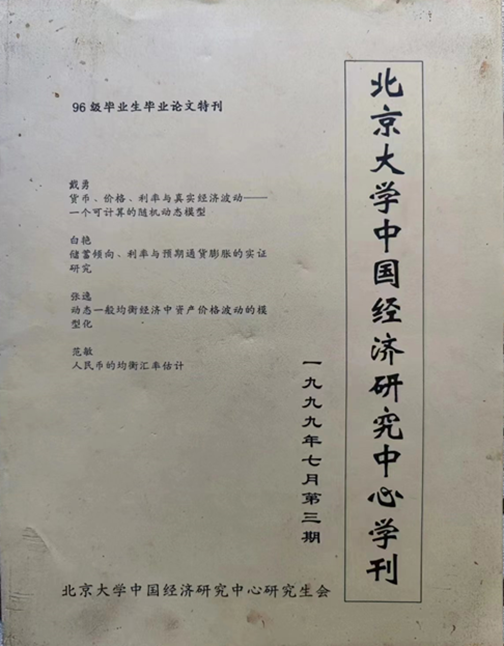 北京大学中国经济研究中心学刊
一九九九年七月第三期
96级毕业生毕业论文特刊
戴勇
货币、价格、利率与真实经济波动——
一个可计算的随机动态模型
白艳
储蓄倾向、利率与预期通货膨胀的实证
研究
张逸
动态一般均衡经济中资产价格波动的模
型化
范敏
人民币的均衡汇率估计
北京大学中国经济研究中心研究生会